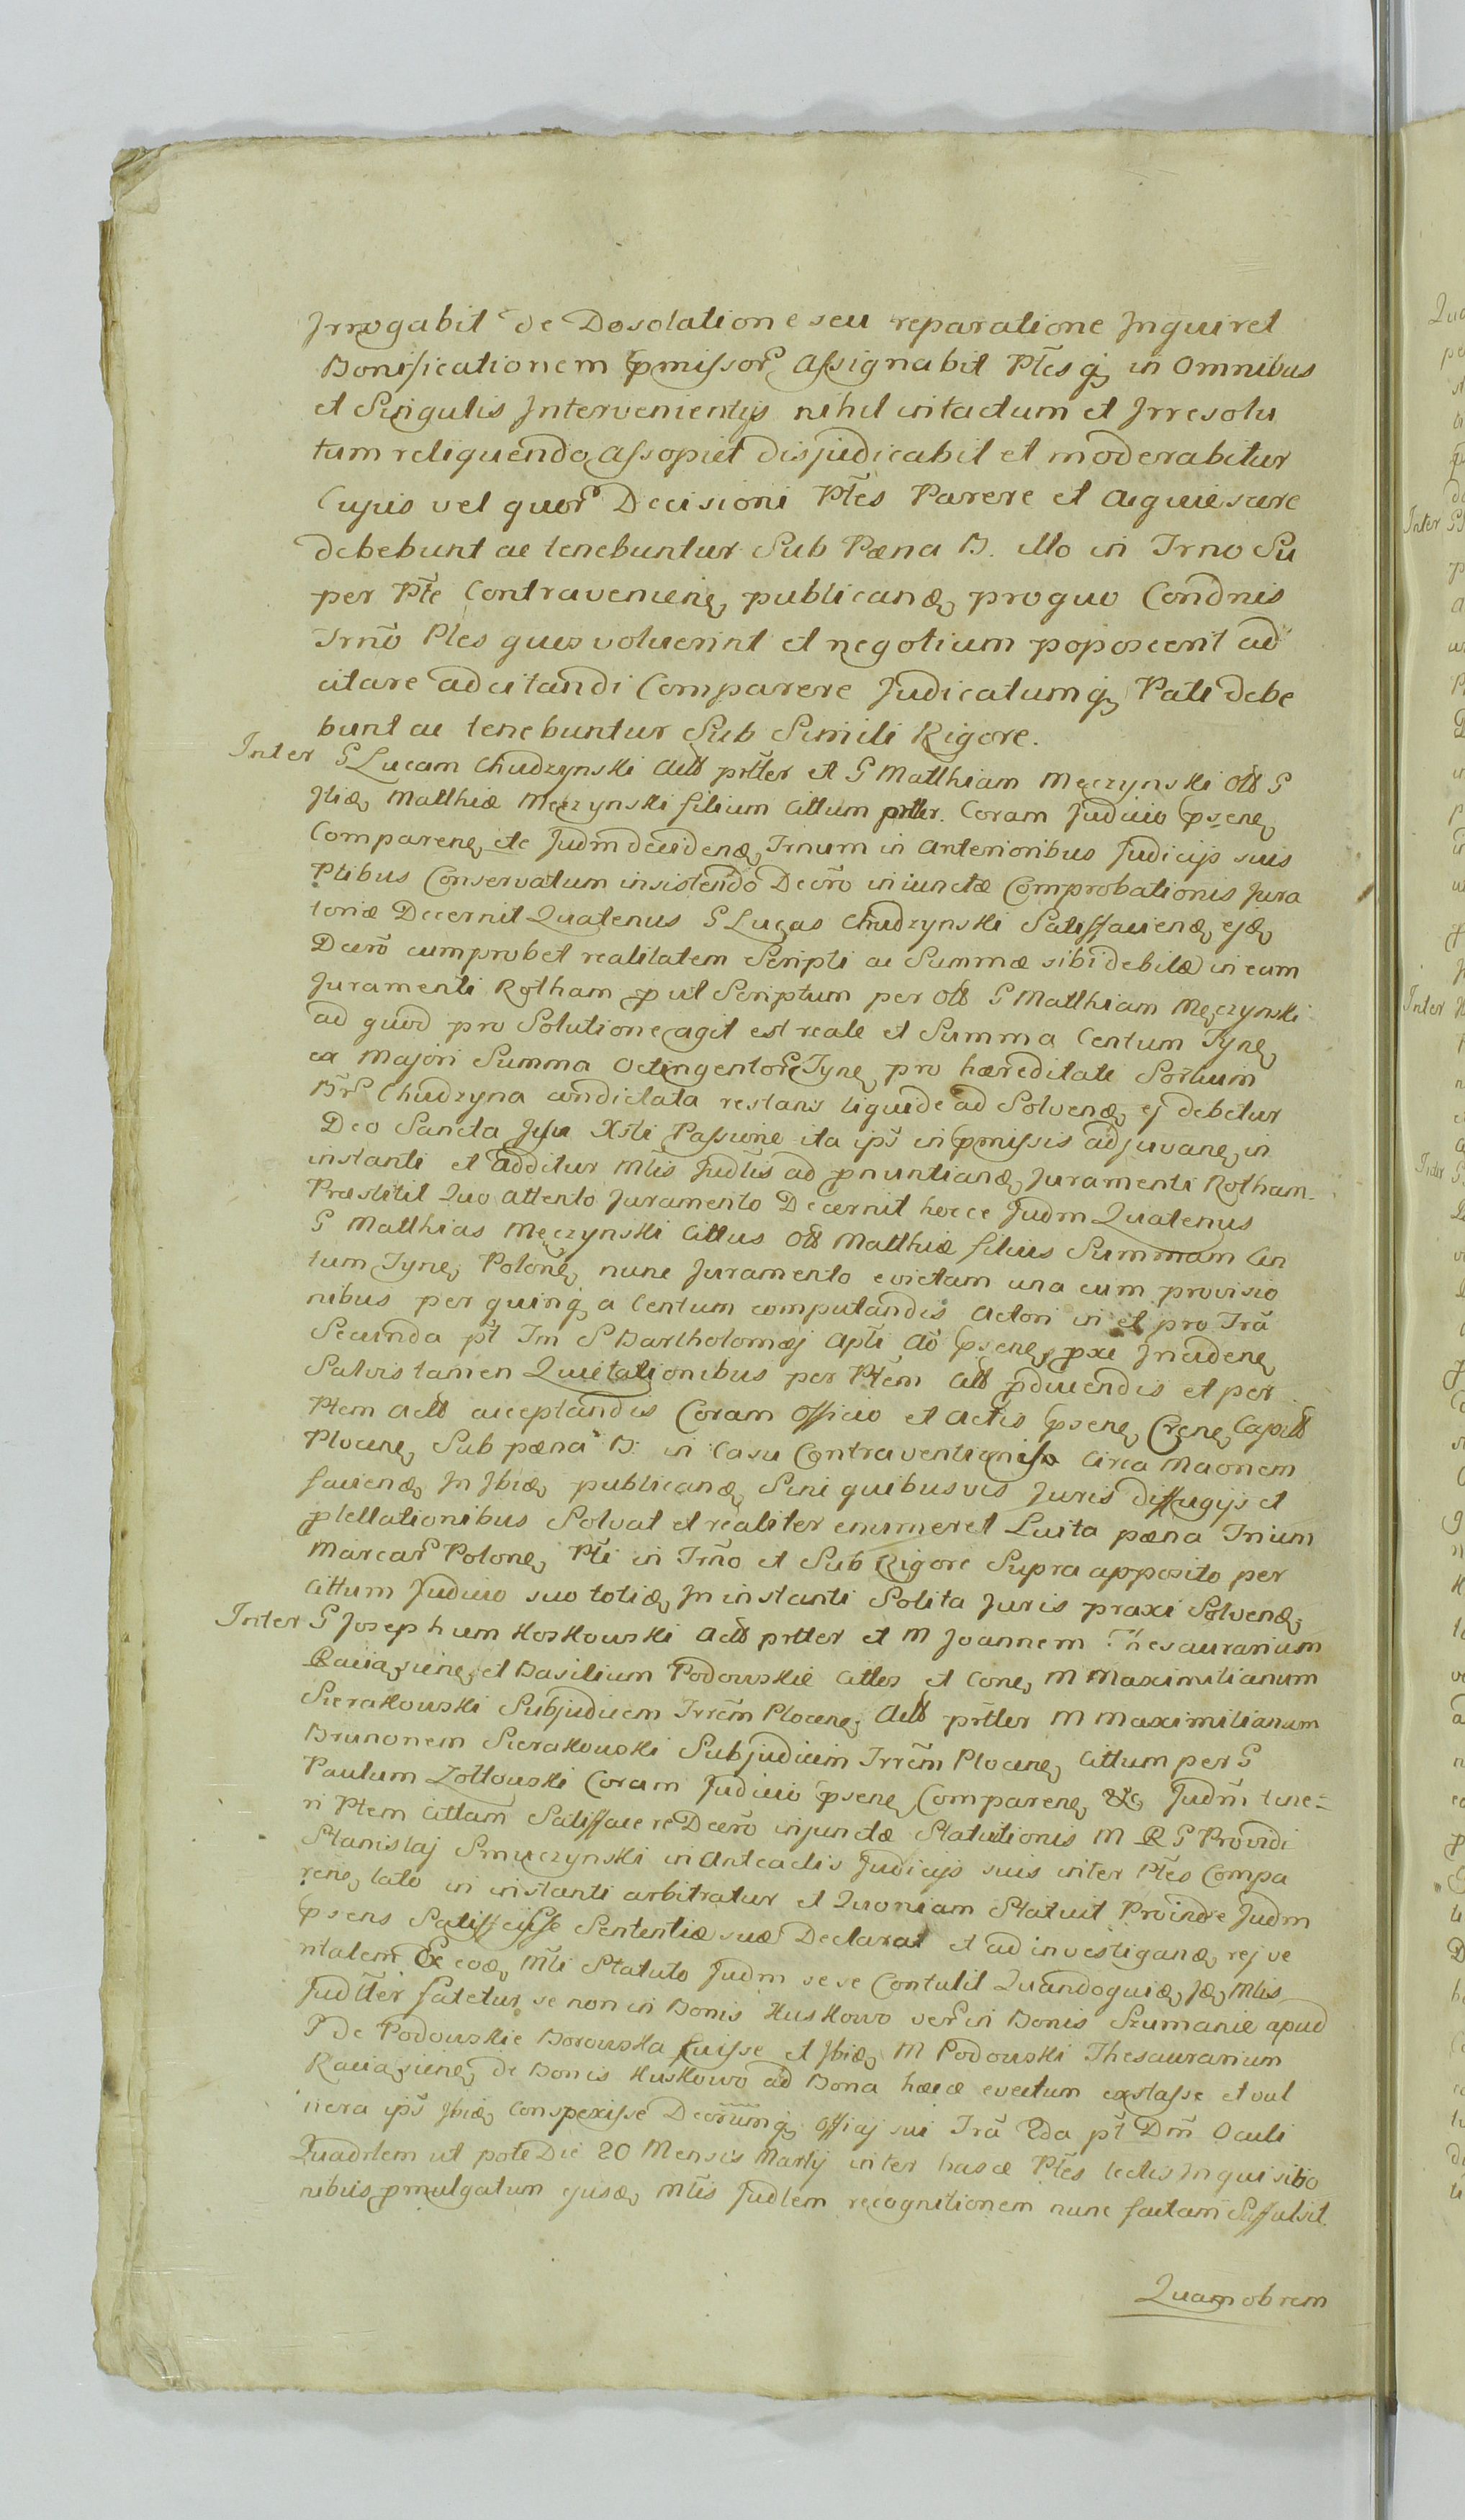 Irrogabit de Dosolatione seu reparatione Inquiret
Bonificationem pmissor Assignabit Ptes q in Omnibus
et Singulis Intervenientijs nihil intactum et Irresolu
tum reliquendo Assopiet disjudicabit et moderabitur
Cujus vel quor Decisioni Ptes Parere et Acquiescere
debebunt ac tenebuntur Sub Pæna B. illo in Trno Su
per Pte Contravenien publicand proquo Condnis
Trno Ptes ques voluerint et negotium poposcerit ad
citare adcitandi Comparere Judicatumq Pati debe
bunt ac tenebuntur Sub Simili Rigore.
Inter G Lucam Chudzynski Act prtter et G Matthiam Męczynski Ott G
Itid Matthiæ Męczynski filium Cittum prtter. Coram Judicio psen
Comparen etc Judm decidend Trnum in Anterioribus Judicijs suis
Ptibus Conservatum insistendo Decro iniunctæ Comprobationis Jura
toriæ Decernit Quatenus G Lucas Chudzynski Satisfaciend ejd
Decro cumprobet realitatem Scripti ac Summæ sibi debitæ in eam
Juramenti Rotham p ut Scriptum per Ott G Matthiam Męczynski
ad quod pro Solutione agit est reale et Summa Centum Tyn
ex Majori Summa Octingentor Tyn pro hæreditate Sortium
Br Chudzyna condictata restans liquide ad Solvend ej debetur
Deo Sancta Jesu Xsti Passione ita ips in pmissis adjuvan in
instanti et additur Mtis Judtis ad pnuntiand Juramenti Rotham
Præstitit Quo attento Juramento Decernit hocce Judm Quatenus
G Matthias Męczynski Cittus Ott Matthiæ filius Summam Cen
tum Tyn Polon nunc Juramento evictam una cum provisio
nibus per quinq a Centum computandis Actori in et pro Tra
Secunda pt Tm S Bartholomæj Apti Ad psen pxe Inciden
Salvis tamen Quietationibus per Ptem Citt pducendis et per
Ptem Act acceptandis Coram Officio et Actis psen Cren Capitt
Plocen Sub pæna B. in Casu Contraventionis Circa Maonem
faciend In Ibid publicand Sine quibusvis Juris diffugijs et
ptellationibus Solvat et realiter enumeret Luita pæna Trium
Marcar Polon Pti in Trno et Sub Rigore Supra apposito per
Cittum Judicio suo totid In instanti Solita Juris praxi Solvend
Inter G Josephum Koskowski Act prtter et M Joannem Thesaurarium
Raciążien et Basilium Podowskie Cittos et Con M Maximilianum
Sierakowski Subjudicem Trrem Plocen Act prtter M Maximilianum
Brunonem Sierakowski Subjudicim Trrem Plocen Cittum per G
Paulum Zołtowski Coram Judicio psen Comparen &c Judm tene=
ri Ptem Cittam Satisfacere Decro injunctæ Statutionis M R G Providi
Stanislaj Smuczynski in Anteactis Judicijs suis inter Ptes Compa
ren lato in instanti arbitratur et Quoniam Statuit Proinde Judm
psens Satisfecisse Sententiæ suæ Declarat et ad investigand rej ve
ritatem Ex eod Mti Statuto Judm sese Contulit Quandoquid Id Mtis
Judtter fatetur se non in Bonis Kuskowo ver in Bonis Szumanie apud
G de Podowskie Borowska fuisse et Ibid M Podowski Thesaurarium
Raciążien de Bonis Kuskowo ad Bona hæce evectum exstasse et vul
nera ips Ibid Conspexisse Decrumq Officij sui Tra 2da pt Dm Oculi
Quadrlem ut pote Die 20 Mensis Martij inter hasce Ptes lectis Inquisitio
nibus pmulgatum ejusd Mtis Judtem recognitionem nunc factam Suffulsit.
Quamobrem